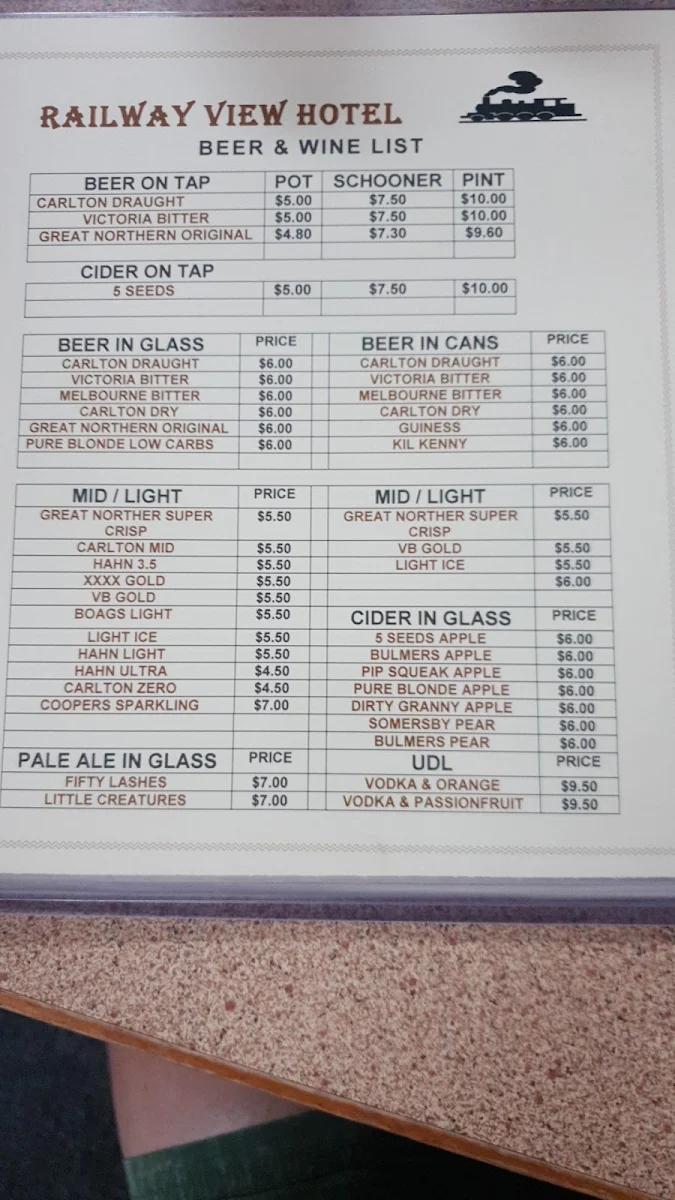 RAILWAY VIEW HOTEL
BEER & WINE LIST
BEER ON TAP POT SCHOONER PINT
CARLTON DRAUGHT $5.00 $7.50 $10.00
VICTORIA BITTER $5.00 $7.50 $10.00
GREAT NORTHERN ORIGINAL $4.80 $7.30 $9.60
CIDER ON TAP
5 SEEDS $5.00 $7.50 $10.00
BEER IN GLASS PRICE BEER IN CANS PRICE
CARLTON DRAUGHT $6.00 CARLTON DRAUGHT $6.00
VICTORIA BITTER $6.00 VICTORIA BITTER $6.00
MELBOURNE BITTER $6.00 MELBOURNE BITTER $6.00
CARLTON DRY $6.00 CARLTON DRY $6.00
GREAT NORTHERN ORIGINAL $6.00 GUINESS $6.00
PURE BLONDE LOW CARBS $6.00 KIL KENNY $6.00
MID / LIGHT PRICE MID / LIGHT PRICE
GREAT NORTHER SUPER $5.50 GREAT NORTHER SUPER $5.50
CRISP CRISP
CARLTON MID $5.50 VB GOLD $5.50
HAHN 3.5 $5.50 LIGHT ICE $5.50
XXXX GOLD $5.50 $6.00
VB GOLD $5.50
BOAGS LIGHT $5.50 CIDER IN GLASS PRICE
LIGHT ICE $5.50 5 SEEDS APPLE $6.00
HAHN LIGHT $5.50 BULMERS APPLE $6.00
HAHN ULTRA $4.50 PIP SQUEAK APPLE $6.00
CARLTON ZERO $4.50 PURE BLONDE APPLE $6.00
COOPERS SPARKLING $7.00 DIRTY GRANNY APPLE $6.00
SOMERSBY PEAR $6.00
BULMERS PEAR $6.00
PALE ALE IN GLASS PRICE UDL PRICE
FIFTY LASHES $7.00 VODKA & ORANGE $9.50
LITTLE CREATURES $7.00 VODKA & PASSIONFRUIT $9.50